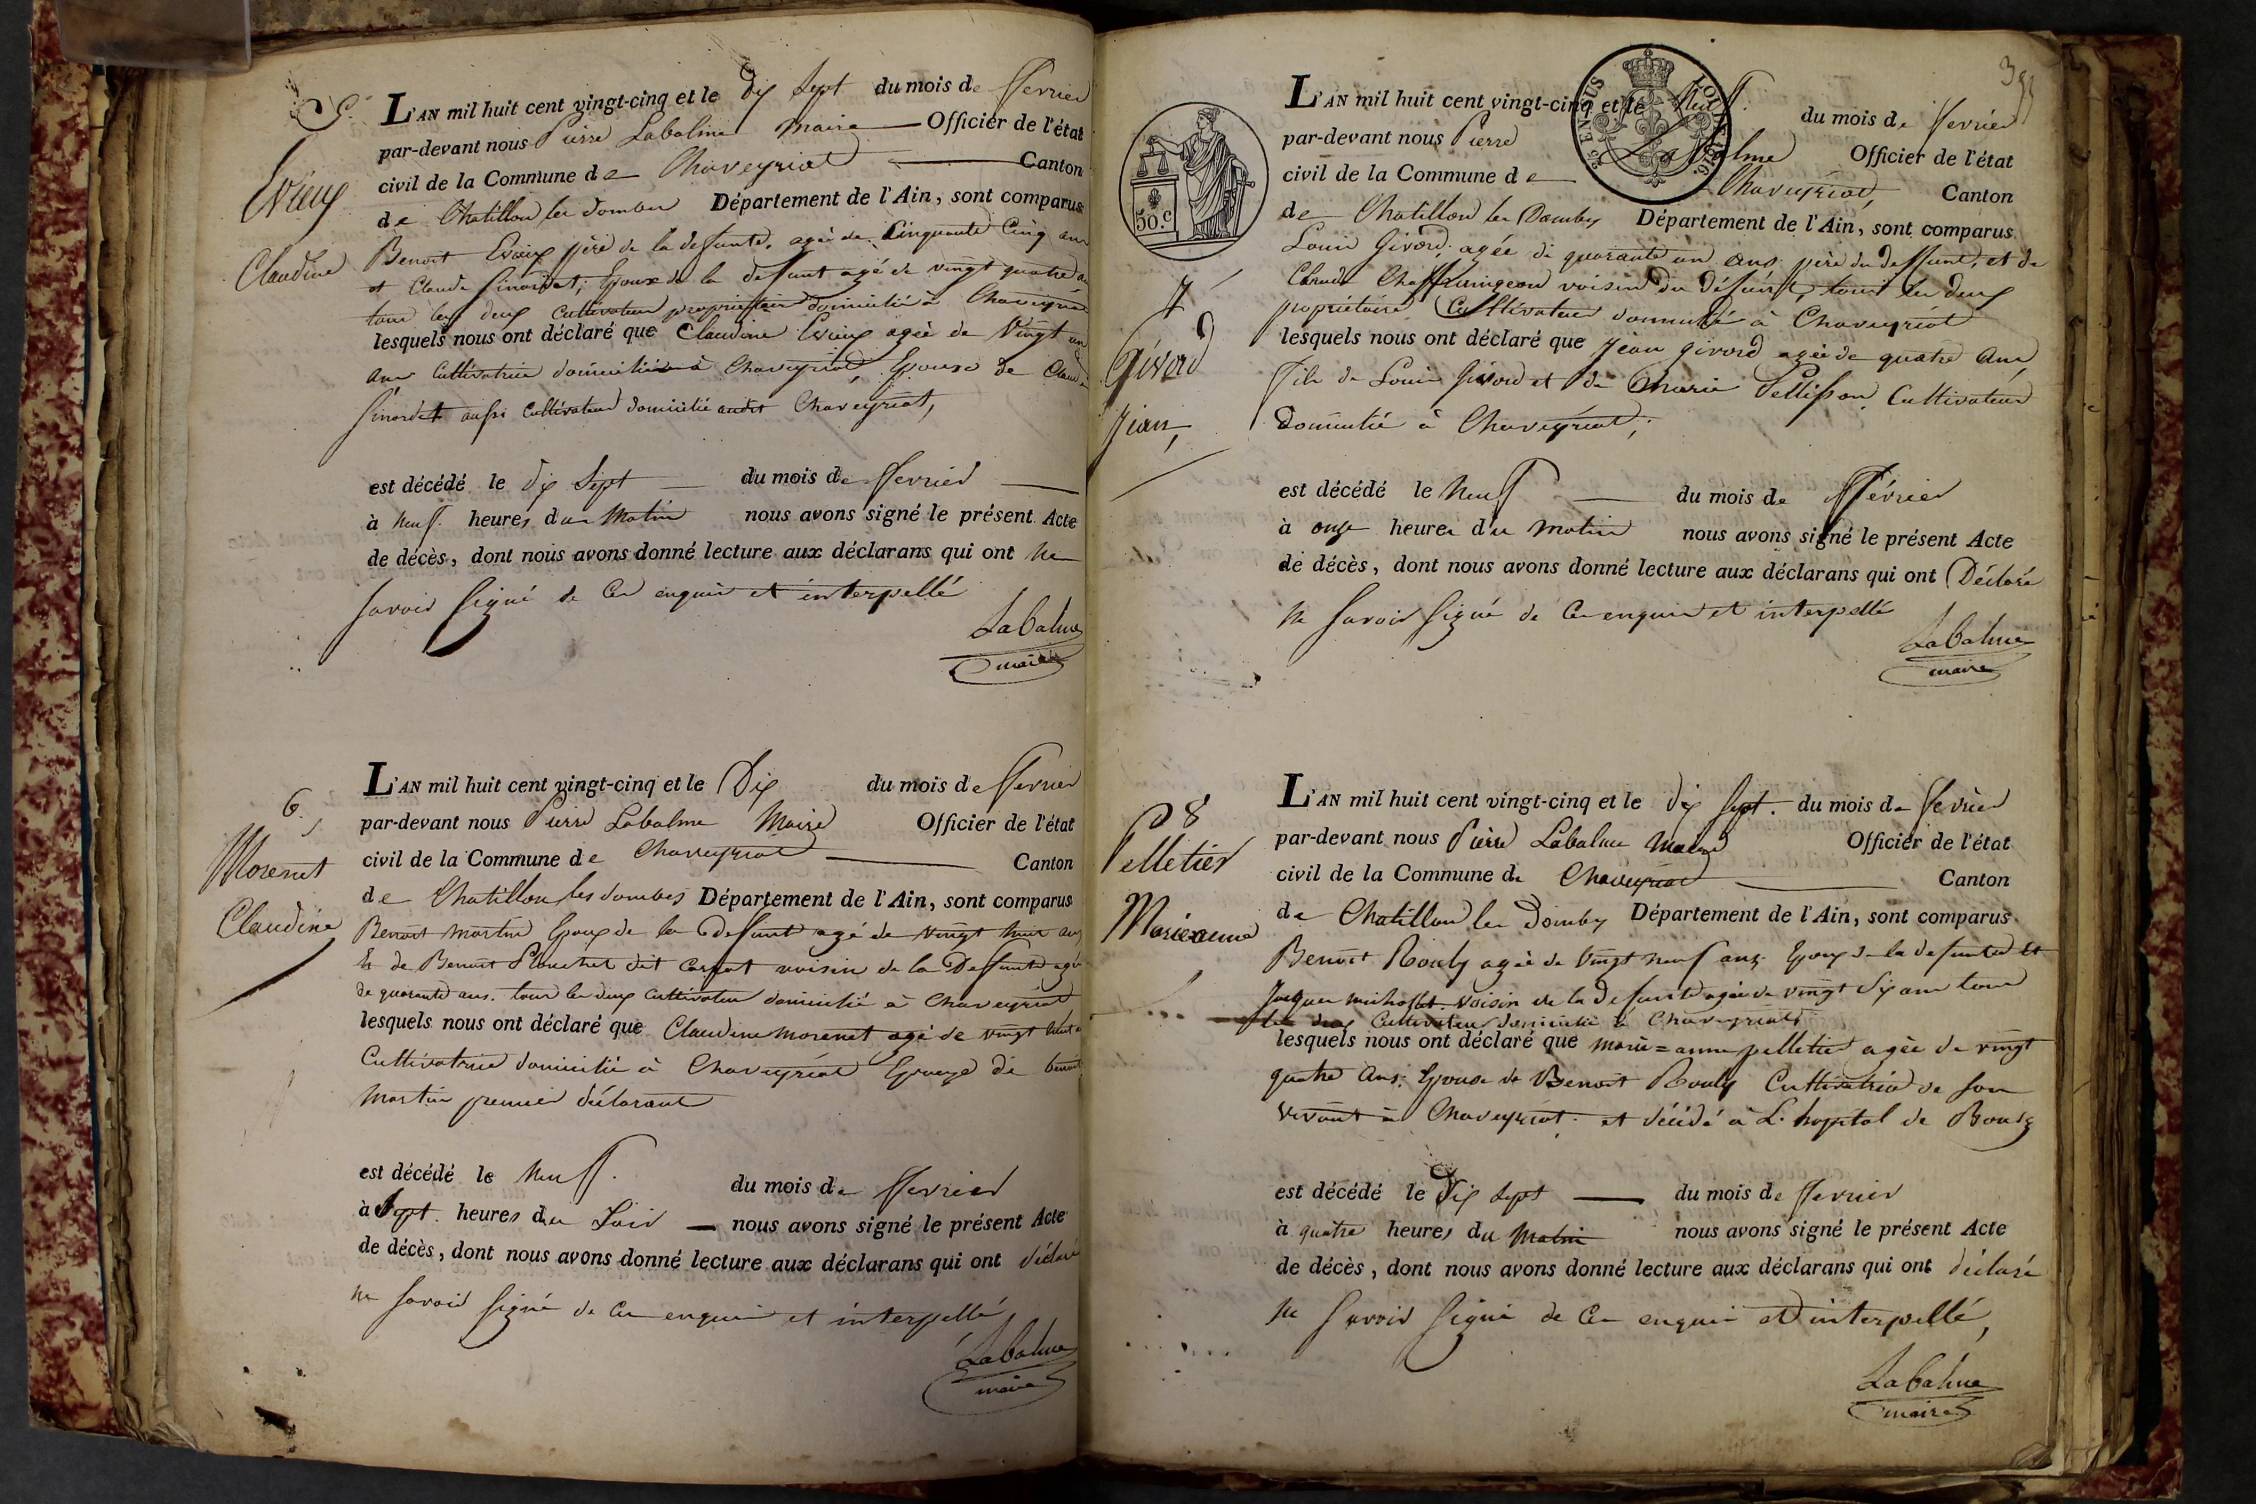 5.
Evieux
Claudine
L'AN mil huit cent vingt-cinq et le dix sept du mois de fevrier
par-devant nous Pierre Labalme maire Officier de l'état
civil de la Commune de Chaveyriat Canton
de Chatillon les dombes Département de l'Ain, sont comparus
Benoit Evieux père de la defunte, agée de Cinquante Cinq ans
et Claude Epoux de la defunt agé de vingt quatre
tous les deux cultivateur proprietaire domicilié à Chaveyriat
lesquels nous ont déclaré que Claudine Evieux agée de Vingt un
ans Cultivatrice domiciliée à Chaveyriat Epouse de Claude
aussi Cultivateur domicilié audit Chaveyriat,
est décédé le dix Sept du mois de fevrier
à neuf heures du Matin nous avons signé le présent Acte
de décès, dont nous avons donné lecture aux déclarans qui ont ne
savoir signé de ce enquis et interpellé
Labalme
maire
6.
Morenet
Claudine
L'AN mil huit cent vingt-cinq et le Dix du mois de fevrier
par-devant nous Pierre Labalme Maire Officier de l'état
civil de la Commune de Chaveyriat Canton
de Chatillon les dombes Département de l'Ain, sont comparus
Benoit Martin Epoux de la Defunt agé de vingt huit ans
Et de Benoit Plouchet dit voisin de la Defunte agé
de quarante ans. tous les deux Cultivateur domicilié à Chaveyriat
lesquels nous ont déclaré que Claudine Morenet agé de vingt huit
Cultivatrice domicilié à Chaveyriat Epouze de benoit
Martin premier déclarant
est décédé le neuf. du mois de fevrier
à Sept. heures du Soir nous avons signé le présent Acte
de décès, dont nous avons donné lecture aux déclarans qui ont déclaré
ne savoir signé de ce enquis et interpellé
Labalme
maire
7
Givord
Jean,
50.c
25 EN SUS LOI DE 1816.
L'AN mil huit cent vingt-cinq et le Neuf. du mois de fevrier
par-devant nous Pierre Labalme Officier de l'état
civil de la Commune de Chaveyriat, Canton
de Chatillon les Dombes Département de l'Ain, sont comparus
Louis Givord, agée de quarante un ans père du deffunt, et de
Claude voisin du défunt, tous les deux
propriétaire Cultivateur domicilié à Chaveyriat
lesquels nous ont déclaré que Jean Givord agée de quatre Ans,
fils de Louis Givord et de Marie Pellisson Cultivateur
domicilié à Chaveyriat,
est décédé le neuf du mois de Février
à onze heures du matin nous avons signé le présent Acte
de décès, dont nous avons donné lecture aux déclarans qui ont Déclaré
ne savoir signé de ce enquis et interpellé
Labalme
maire
8
Pelletier
Marieanne
L'AN mil huit cent vingt-cinq et le dix sept. du mois de fevrier
par-devant nous Pierre Labalme maire Officier de l'état
civil de la Commune de Chaveyriat Canton
de Chatillon les Dombes Département de l'Ain, sont comparus
Benoit Rouly agée de Vingt neuf ans Epoux de la defunte Et
Jacques voisin de la Defunte agée de vingt Six ans tous
les deux Cultivateur domicilié à Chaveyriat
lesquels nous ont déclaré que marie=anne pelletier agée de vingt
quatre Ans. Epouse de Benoit Rouly Cultivatrice de son
vivant à Chaveyriat. et décédé à L'hopital de Bourg
est décédé le Dix Sept du mois de fevrier
à quatre heures du Matin nous avons signé le présent Acte
de décès, dont nous avons donné lecture aux déclarans qui ont déclaré
ne savoir signé de ce enquis et interpellé,
Labalme
maire